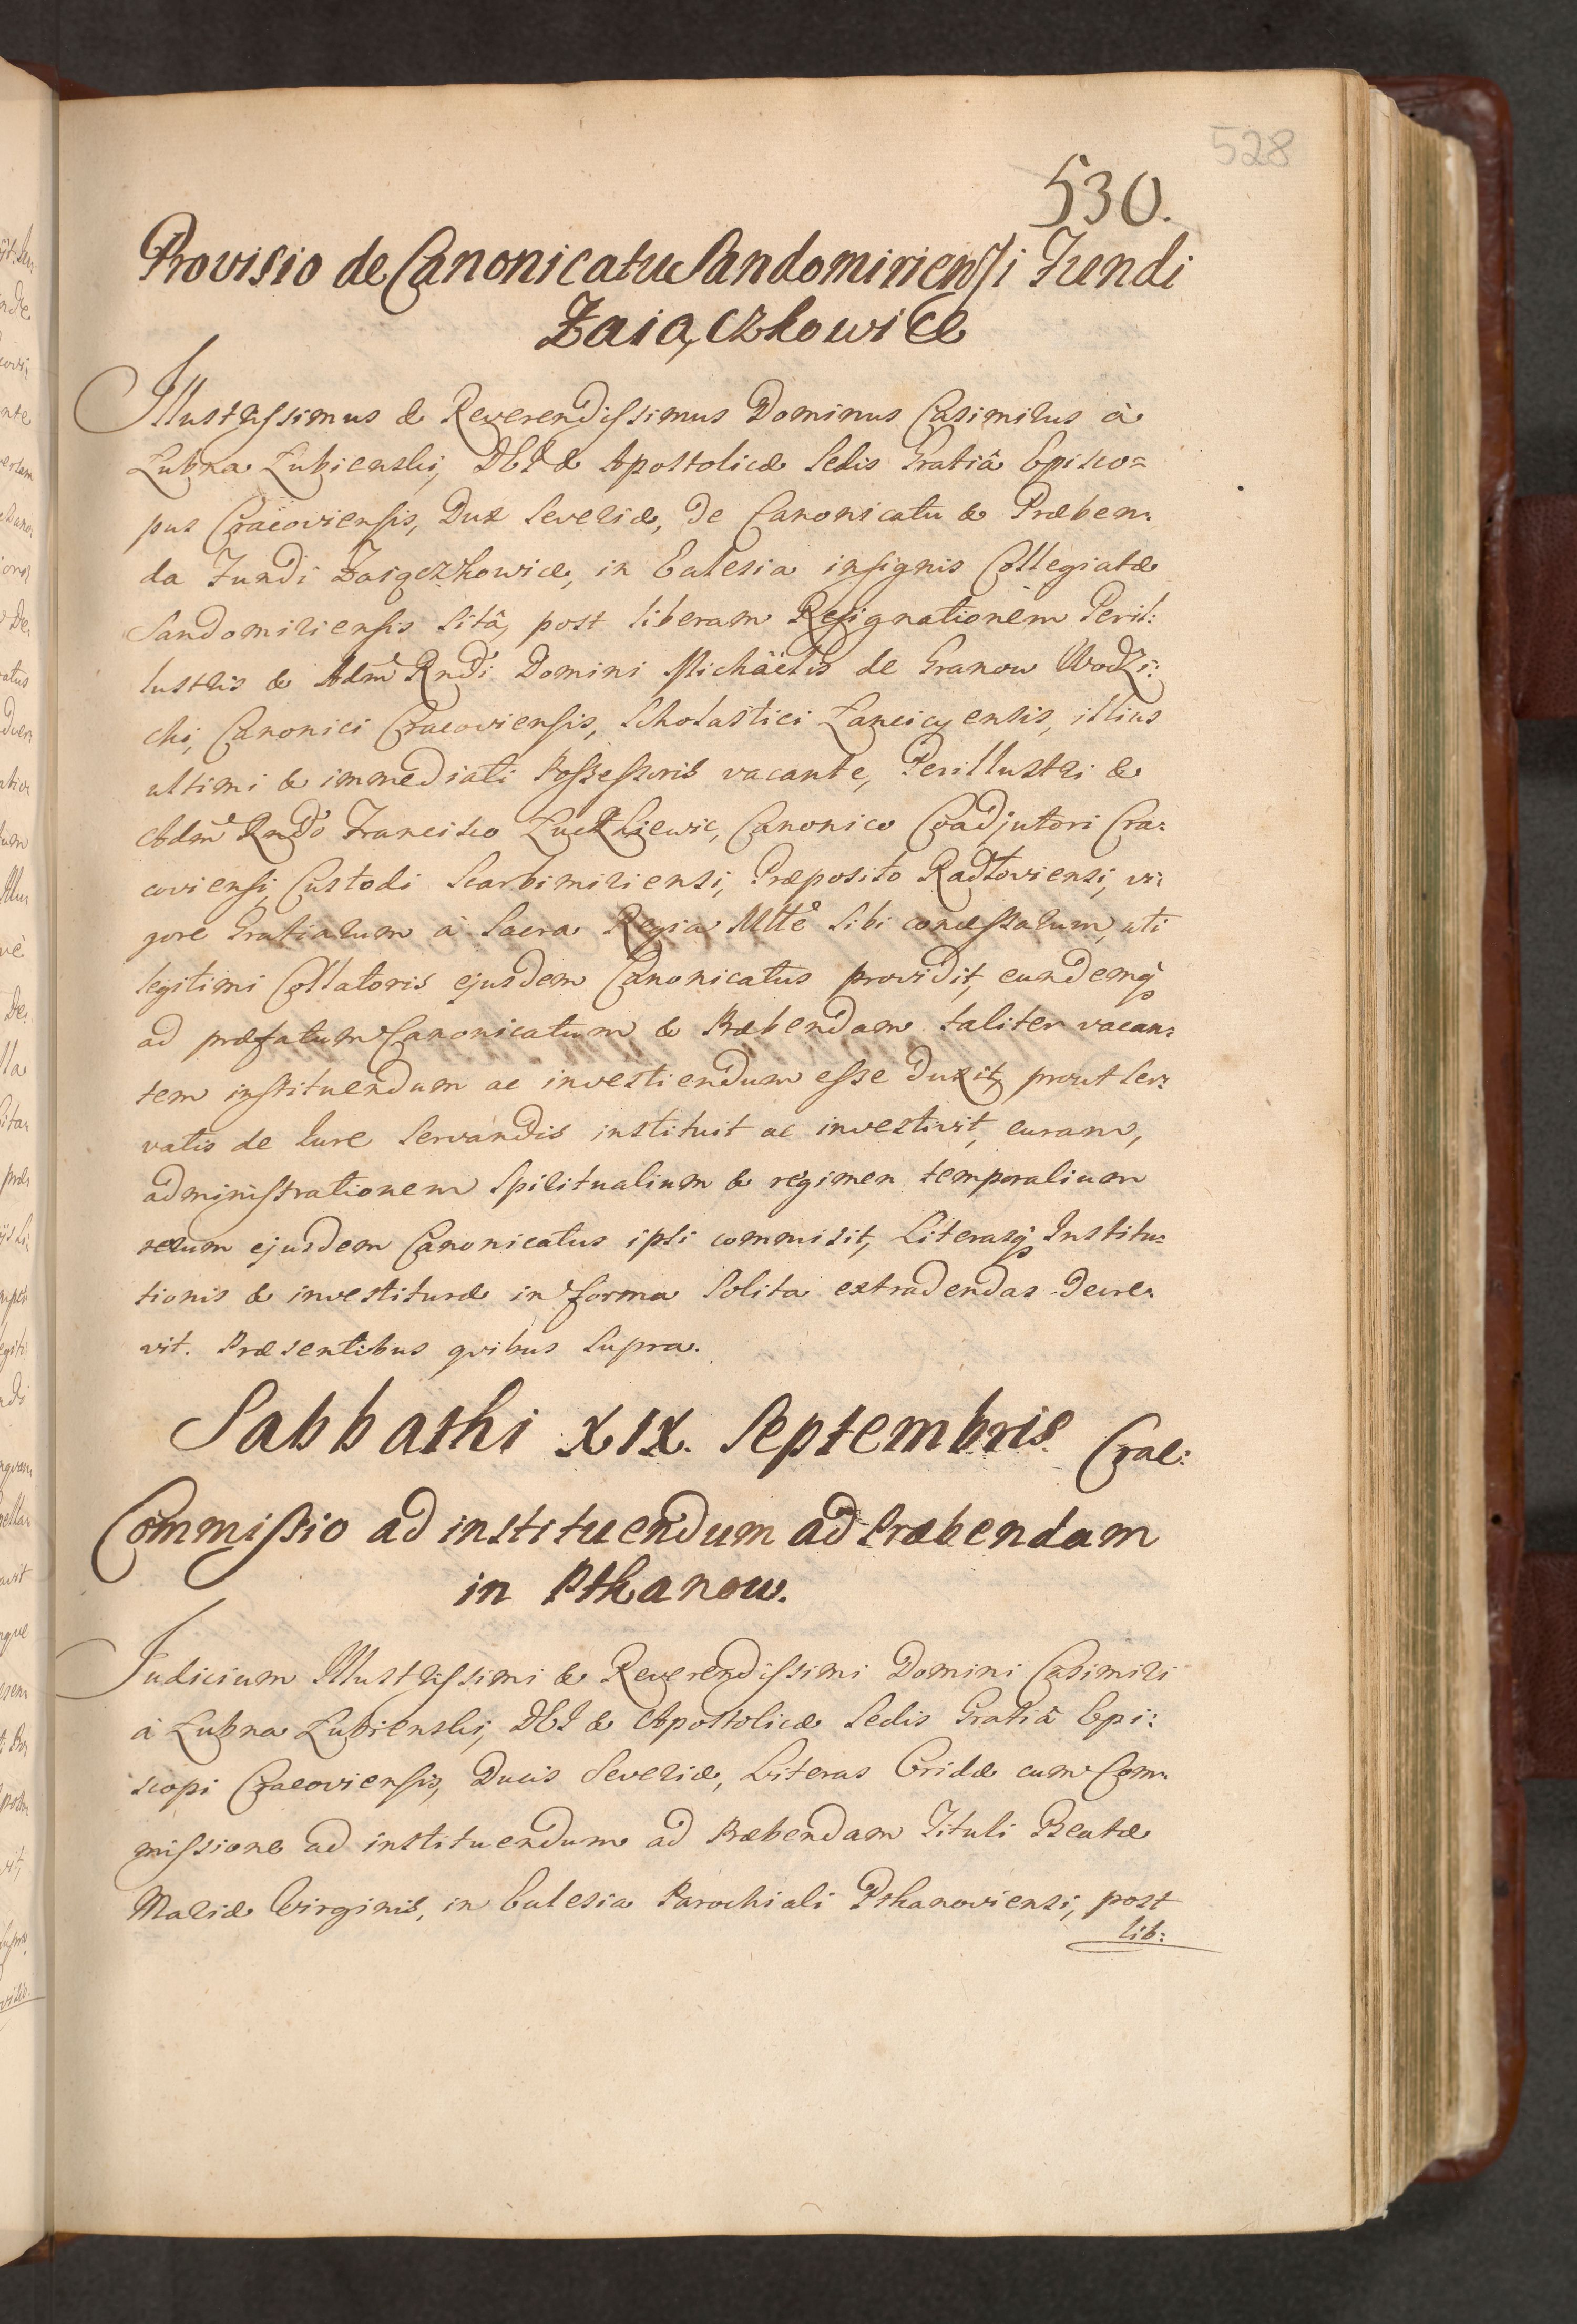 528
530.
Provisio de Canonicatu Sandomiriensi Fundi
Zaiączkowice
Illustrissimus & Reverendissimus Dominus Casimirus à
Łubna Łubienski, DEI & Apostolicæ Sedis Gratiâ Episco=
pus Cracoviensis, Dux Severiæ, de Canonicatu & Præben:
da Fundi Zaiączkowice, in Ecclesia insignis Collegiatæ
Sandomiriensis sitâ, post liberam Resignationem Peril:
lustris & Admͫ Rndi Domini Michäelis de Granow Wodzi:
cki, Canonici Cracoviensis, Scholastici Lanciciensis, illius
ultimi & immediati Possessoris vacante, Perillustri &
Admͫ Rndo Francisco Canonico Coadjutori Cra:
coviensi, Custodi Scarbimiriensi, Præposito Radłoviensi, vi:
gore Gratiarum à Sacra Regia Mtte sibi concessarum, uti
legitimi Collatoris ejusdem Canonicatus providit, eundemq́
ad præfatum Canonicatum & Præbendam taliter vacan:
tem instituendum ac investiendum esse duxit, prout Ser:
vatis de Iure Servandis instituit ac investivit, curam,
administrationem Spiritualium & regimen temporalium
rerum ejusdem Canonicatus ipsi commisit, Literasq́ Institu:
tionis & investituræ in forma Solita extradendas decre:
vit. Præsentibus qvibus Supra.
Sabbathi XIX. Septembris. Crac:
Commissio ad instituendum ad Præbendam
in Pthanow.
Judicium Illustrissimi & Reverendissimi Domini Casimiri
à Łubna Łubienski, DEI & Apostolicæ Sedis Gratiâ Epi:
scopi Cracoviensis, Ducis Severiæ, Literas Cridæ cum Com:
missione ad instituendum ad Præbendam Tituli Beatæ
Mariæ Virginis, in Ecclesia Parochiali Pthanoviensi, post
lib: